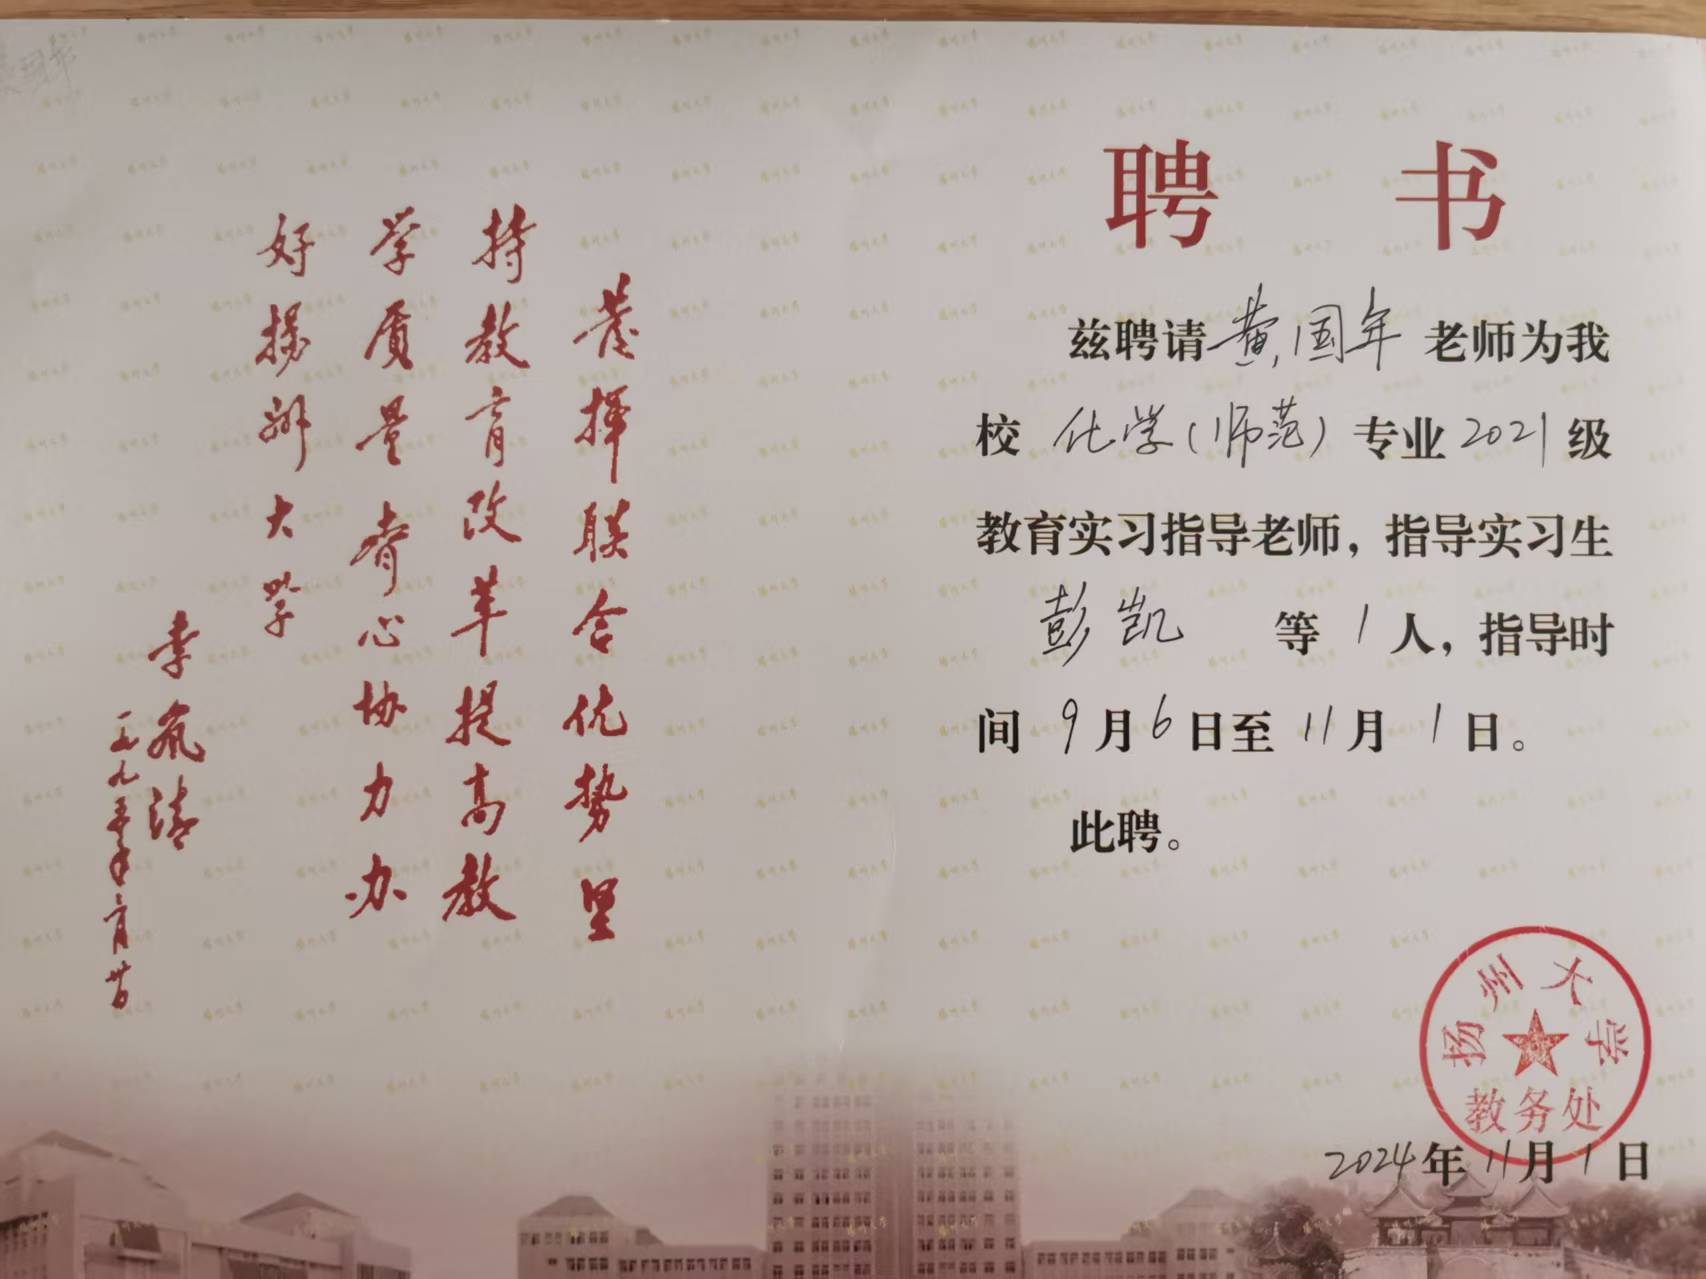 发挥联合优势坚
持教育改革提高教
学质量齐心协力办
好扬州大学
李岚清
一九九五年二月廿日
聘 书
兹聘请黄国年老师为我
校 化学(师范) 专业2021级
教育实习指导老师，指导实习生
彭凯 等 1 人，指导时
间 9月6日至11月1日。
此聘。
扬州大学
教务处
2024年11月1日